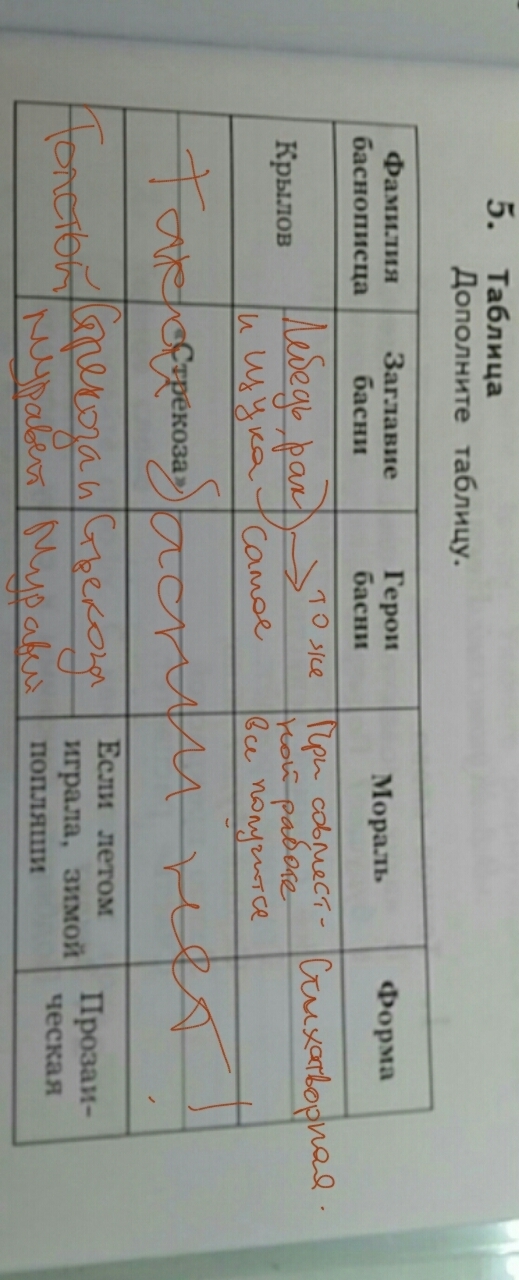 5. Таблица
Дополните таблицу.
Фамилия баснописца
Заглавие басни
Герои басни
Мораль
Форма
Крылов
Лебедь, рак
и щука
→ то же
самое
При совмест-
ной работе
все получится
Стихотворная.
«Стрекоза»
Такой басни нет!
Толстой
Стрекоза и
муравей
Стрекоза
Муравей
Если летом
играла, зимой
попляши
Прозаи-
ческая